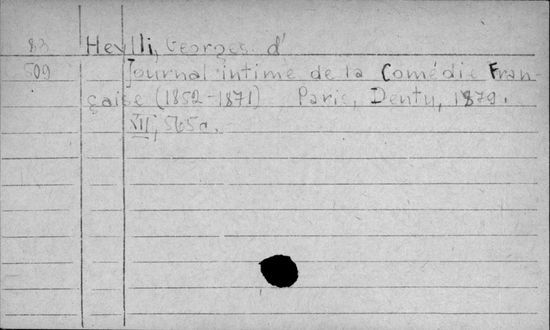 83 Heylli, Georges d'
509 Journal intime de la Comédie Fran-
çaise (1852-1871) Paris, Dentu, 1879.
XII, 565 p.